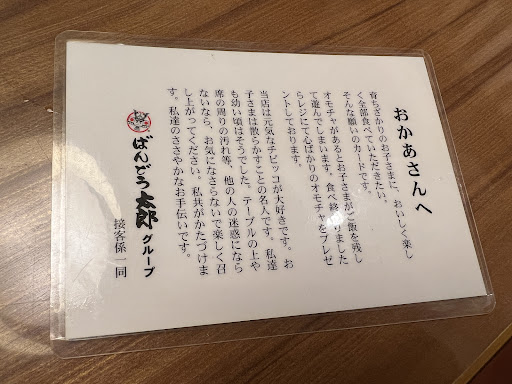 おかあさんへ
育ちざかりのお子さまに、おいしく楽し
く全部食べていただきたい。
そんな願いのカードです。
オモチャがあるとお子さまがご飯を残し
て遊んでしまいます。食べ終りました
らレジにて心ばかりのオモチャをプレゼ
ントしております。
当店は元気なチビッコが大好きです。お
子さまは散らかすことの名人です。私達
も幼い頃はそうでした。テーブルの上や
席の周りの汚れ等、他の人の迷惑になら
ないなら、お気になさらないで楽しく召
し上がってください。私共がかたづけま
す。私達のささやかなお手伝いです。
ばんどう太郎グループ
接客係一同